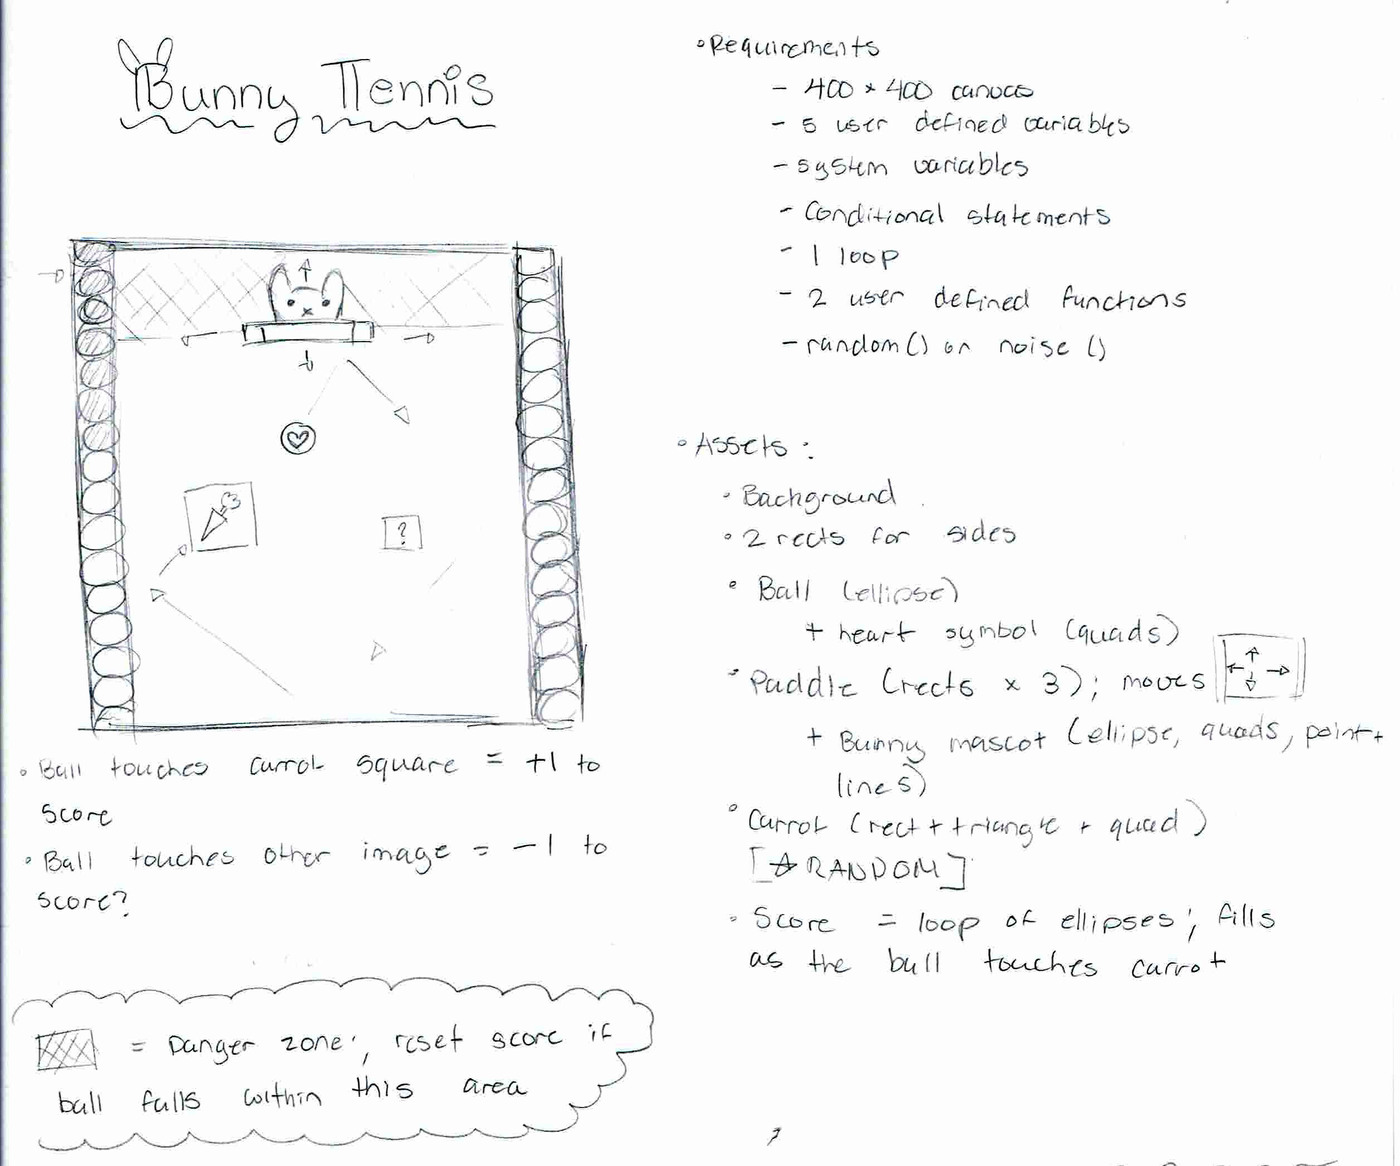 Bunny Tennis
?
• Ball touches carrot square = +1 to
score
• Ball touches other image = -1 to
score?
= Danger zone; reset score if
ball falls within this area
• Requirements
- 400 × 400 canvas
- 5 user defined variables
- system variables
- Conditional statements
- 1 loop
- 2 user defined functions
- random() or noise ()
• Assets :
• Background
• 2 rects for sides
• Ball (ellipse)
+ heart symbol (quads)
• Paddle (rects x 3); moves
+ Bunny mascot (ellipse, quads, point+
lines)
• Carrot (rect + triangle + quad)
[☆ RANDOM]
• Score = loop of ellipses; fills
as the ball touches carrot